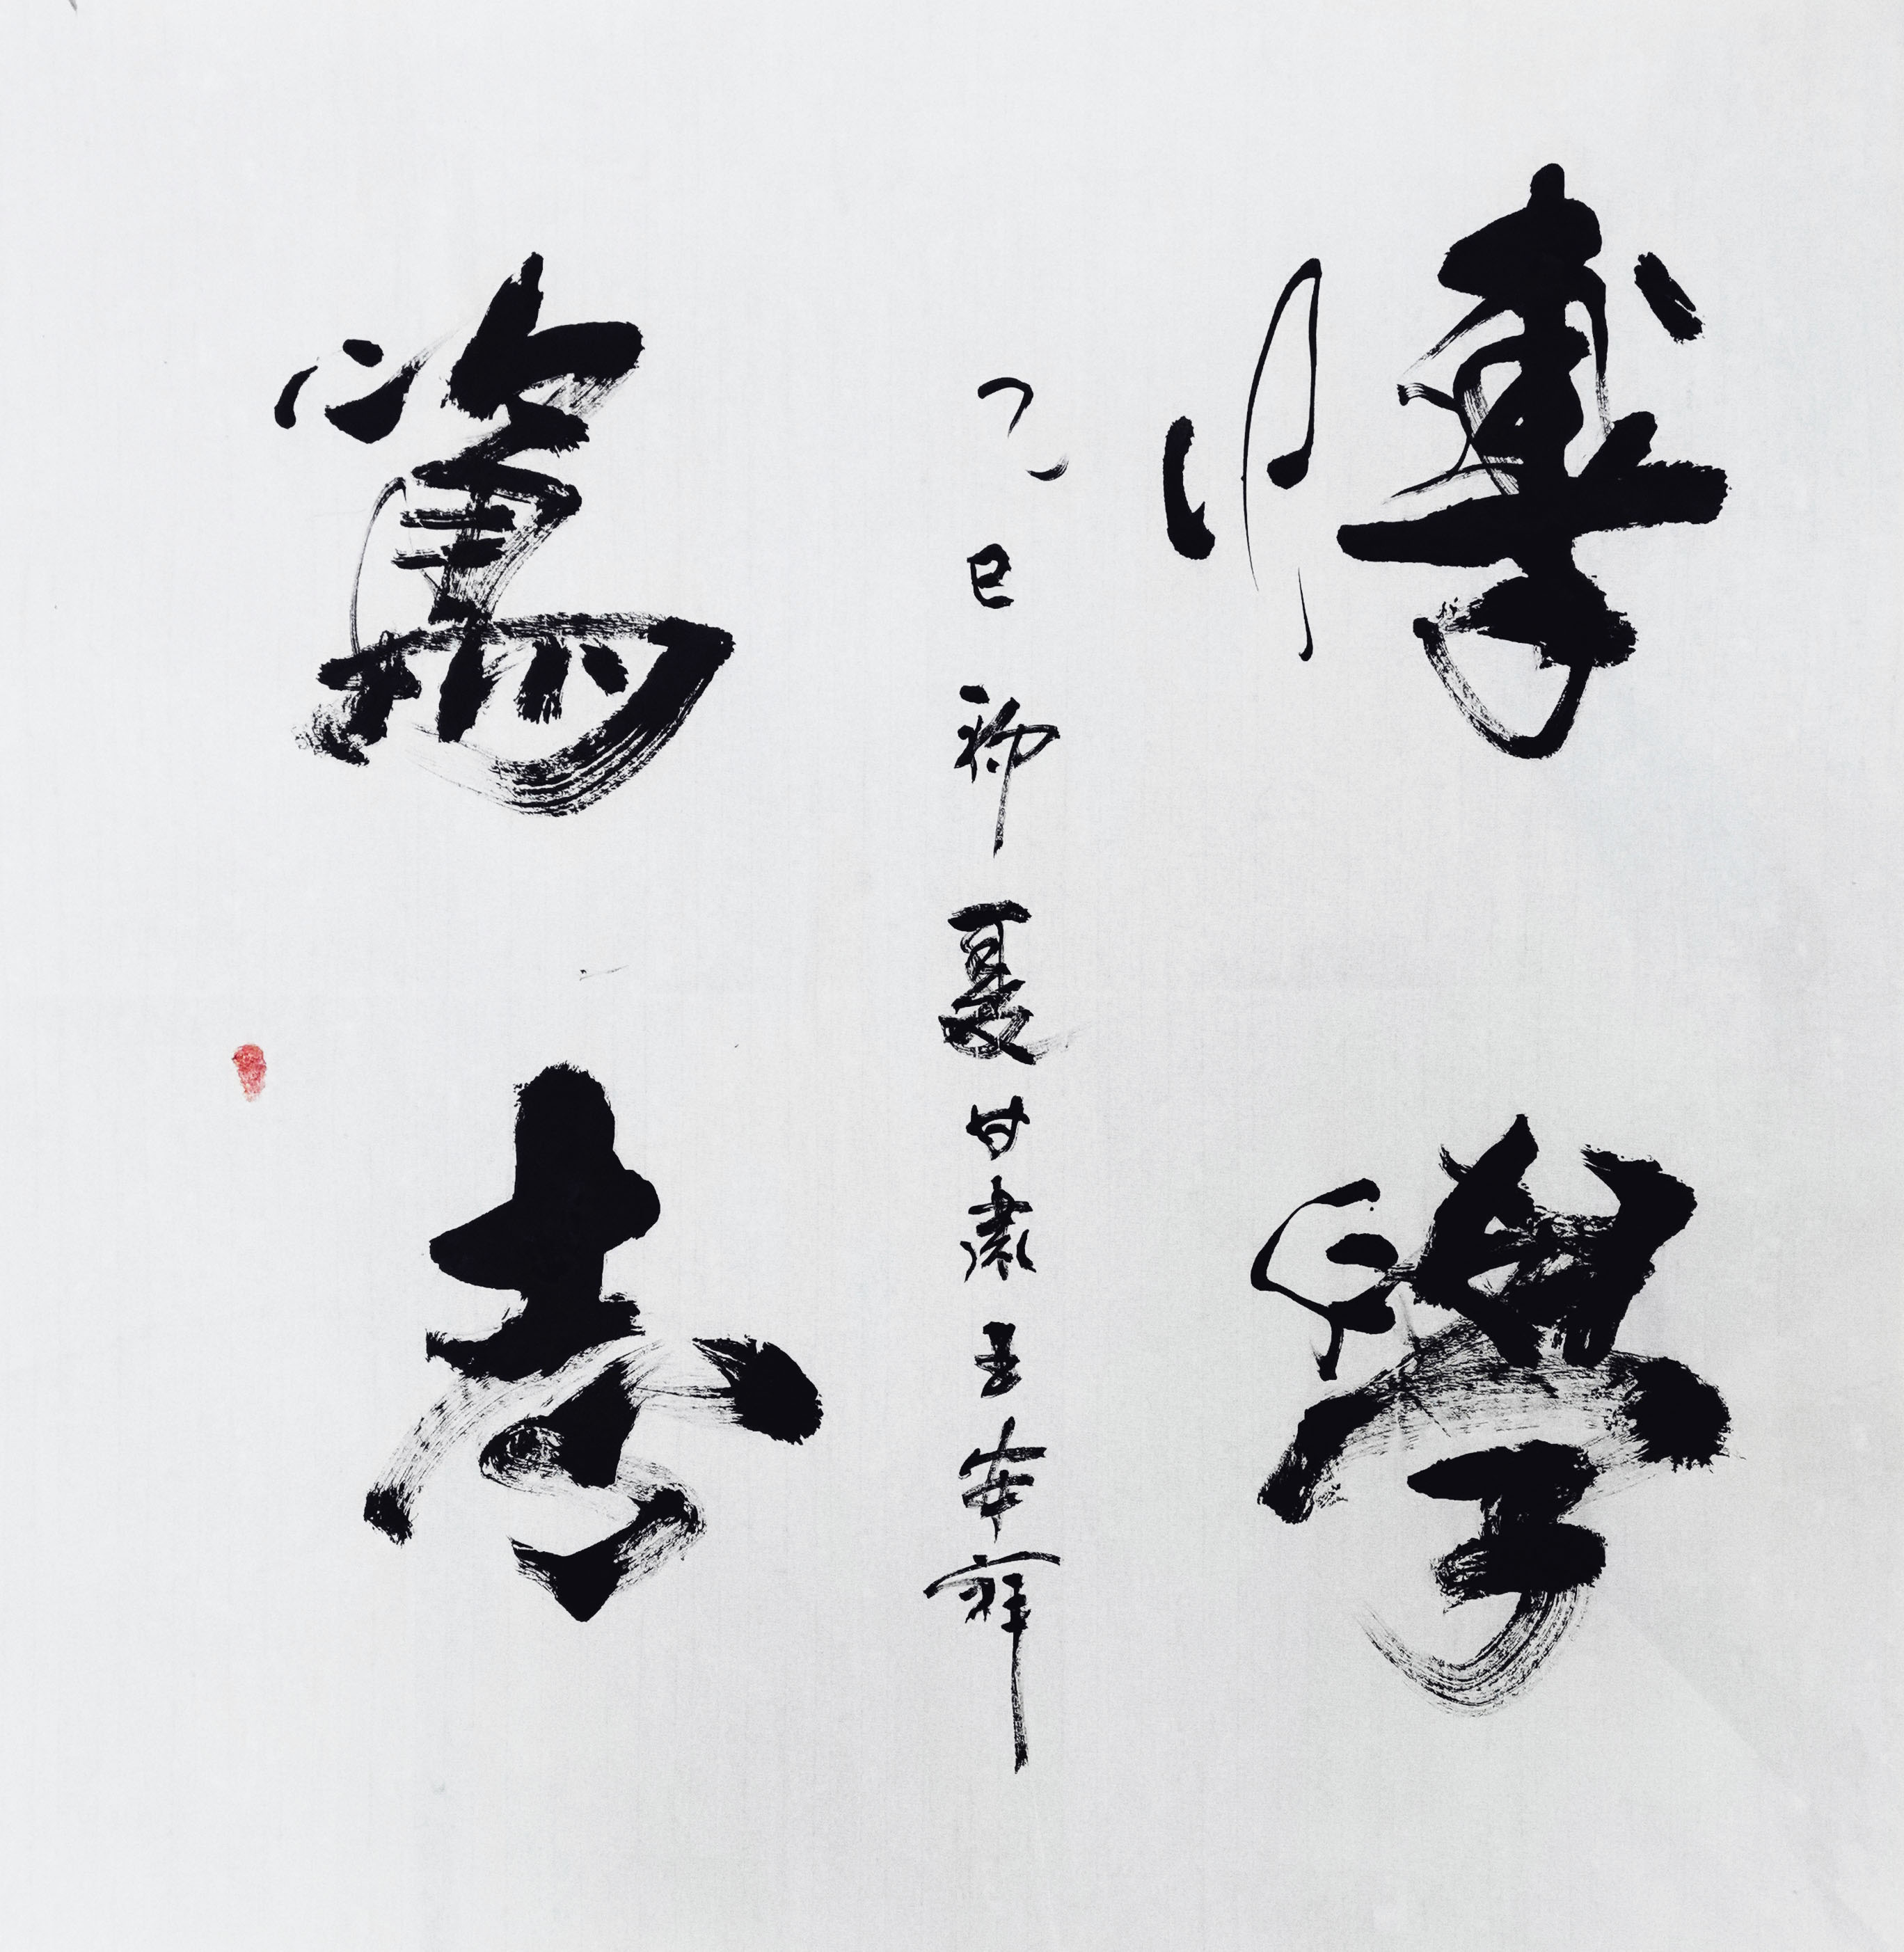 博學
乙巳初夏甘肅王安祥
篤志